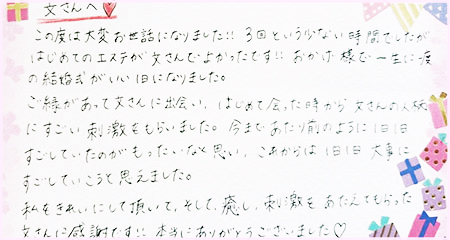 文さんへ♡
この度は大変お世話になりました!! 3回という少ない時間でしたが
はじめてのエステが文さんでよかったです!! おかげ様で一生に一度
の結婚式がいい1日になりました。
ご縁があって文さんに出会い、はじめて会った時から文さんの人柄
にすごい刺激をもらいました。今まであたり前のように1日1日
すごしていたのがもったいないなと思い、これからは1日1日大事に
すごしていこうと思えました。
私をきれいにして頂いて、そして、癒し、刺激をあたえてもらった
文さんに感謝です!! 本当にありがとうございました♡